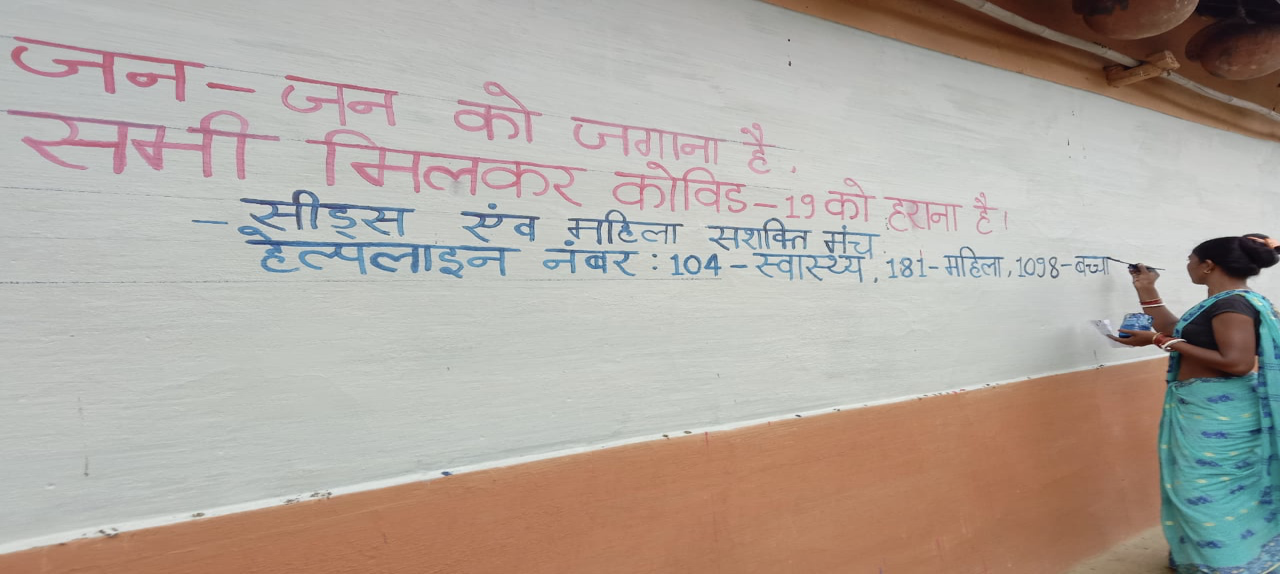 जन-जन को जगाना है,
सभी मिलकर कोविड-19 को हराना है।
- सीड्स एंव महिला सशक्ति मंच
हेल्पलाइन नंबर : 104-स्वास्थ्य, 181-महिला, 1098-बच्चा